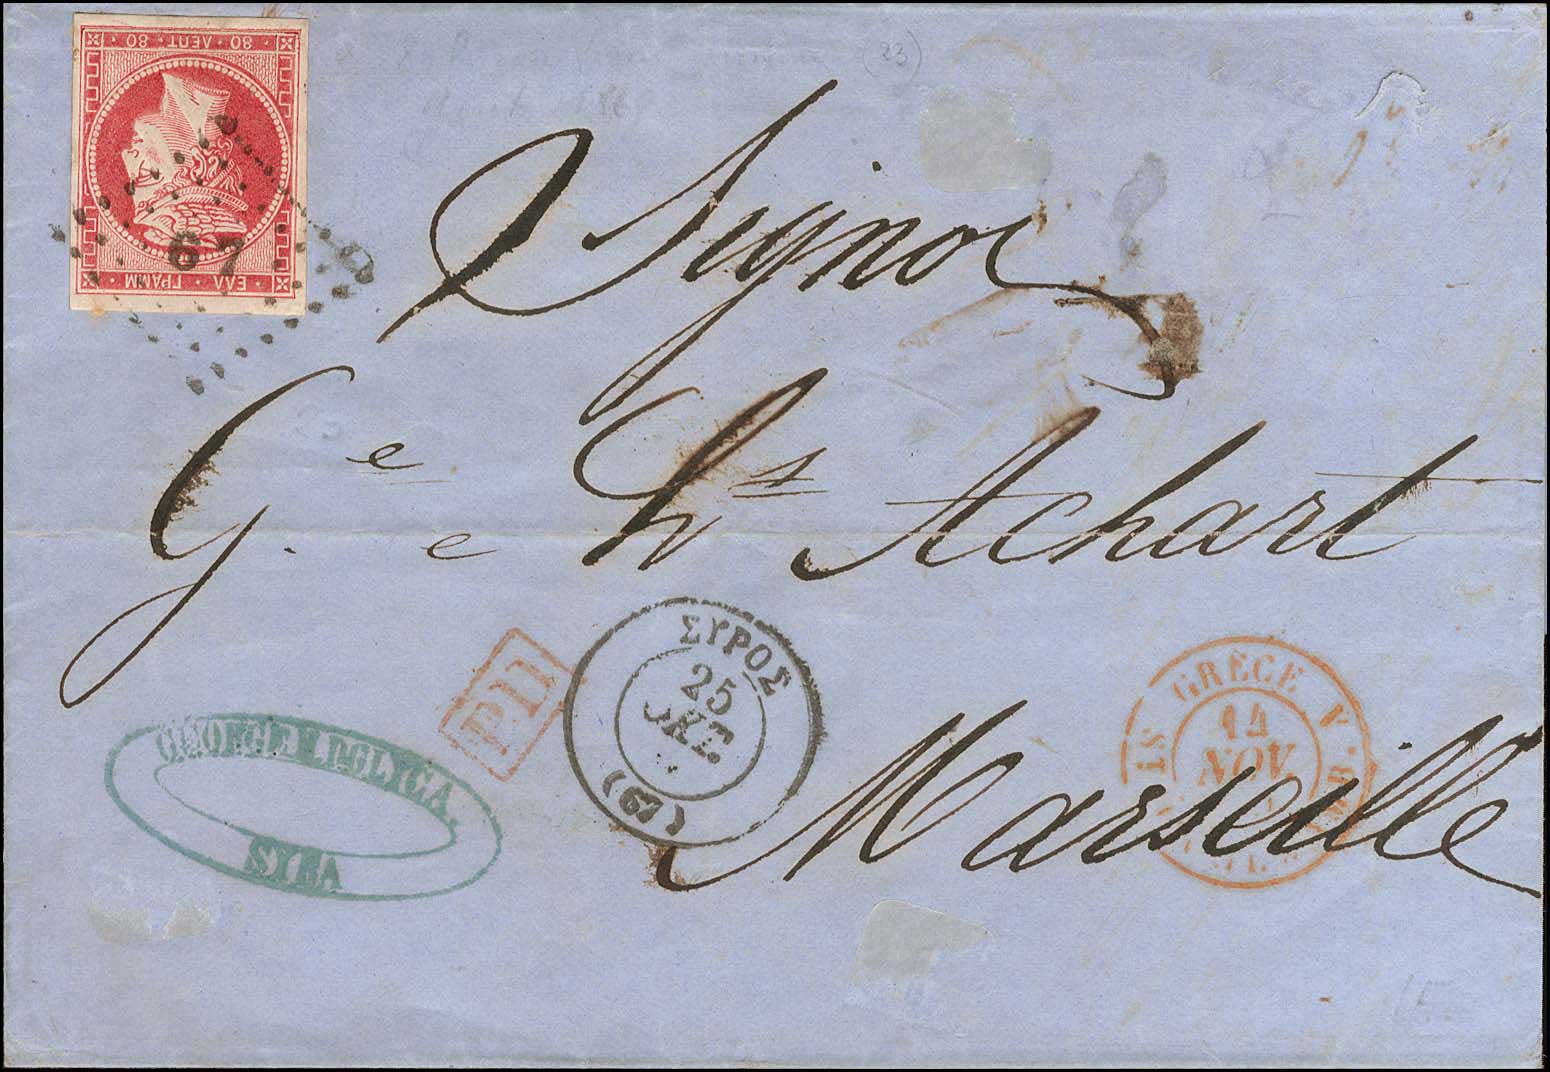 80 ΛΕΠΤ 80
67
ΕΛΛ ΓΡΑΜΜ
23
Signor
G.e e Hts Achart
P.D
ΣΥΡΟΣ
25
ΟΚΤ.
(67)
GRÈCE V.
14
NOV
GEORGE
SYRA
Marseille